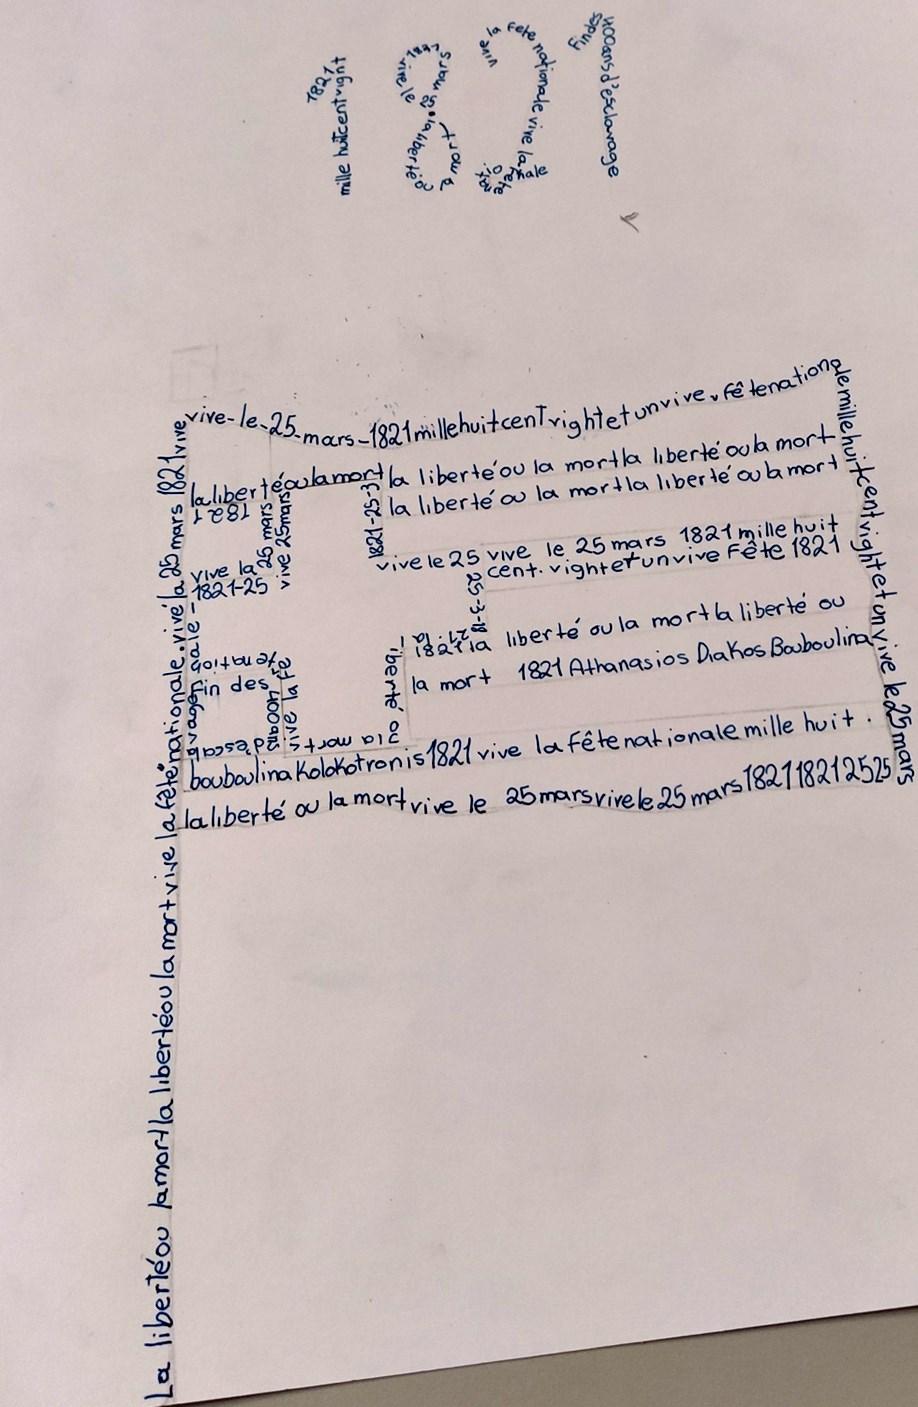 1821
mille huitcentvight
vive le
1821
25 mars
la liberté
ou la mort
vive la Fête nationale vive la
Fête
findes
400ansd'esclavage
vive-le-25-mars-1821millehuitcentvightetunvive.Fêtenationale millehuitcentvightetunvive le25mars
laliberté oulamort la liberté ou la mortla liberté oula mort
la liberté ou la mortla liberté oula mort
1821
25 mars
vive 25mars
1821-25-3
vive la
1821-25
vive le 25 vive le 25 mars 1821 mille huit
cent. vightetunvive Fête 1821
25-3-18
1821 la liberté ou la mort la liberté ou
la mort 1821 Athanasios Diakos Bouboulina
fin des
400ans
vive la Fê
ou la mort
bouboulina Kolokotronis 1821 vive la fête nationale mille huit.
laliberté ou la mort vive le 25marsvivele25mars182118212525
La liberté ou lamort la liberté ou la mort vive la fête nationale.vive la 25 mars 1821 vive